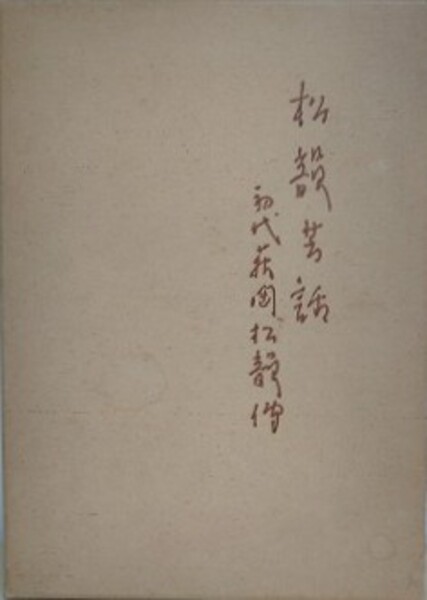 松韻芸話
初代萩岡松韻傳